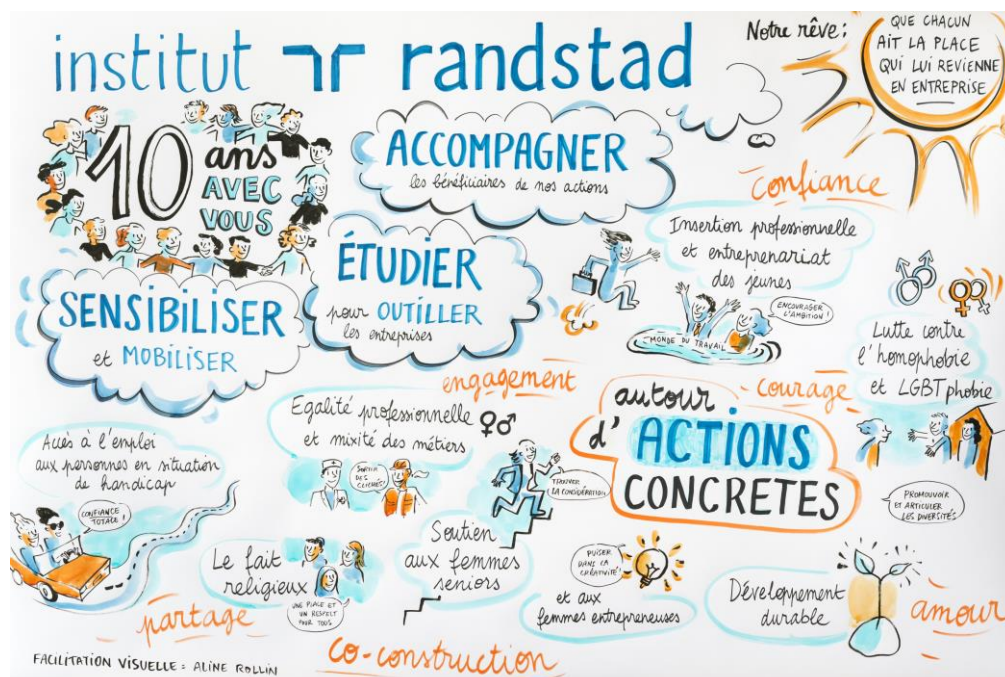 institut randstad
10
ans
AVEC
VOUS
Notre rêve :
QUE CHACUN
AIT LA PLACE
QUI LUI REVIENNE
EN ENTREPRISE
ACCOMPAGNER
les bénéficiaires de nos actions
SENSIBILISER
et MOBILISER
ÉTUDIER
pour OUTILLER
les entreprises
confiance
Insertion professionnelle
et entreprenariat
des jeunes
ENCOURAGER
L'AMBITION !
MONDE DU TRAVAIL
Lutte contre
l'homophobie
et LGBTphobie
engagement
courage
autour
d'ACTIONS
CONCRETES
Egalité professionnelle
et mixité des métiers
SORTIR
DES
CLICHÉS!
Accès à l'emploi
aux personnes en situation
de handicap
CONFIANCE
TOTALE !
TROUVER
LA CONSIDÉRATION
PROMOUVOIR
ET ARTICULER
LES DIVERSITÉS
Le fait
religieux
UNE PLACE ET
UN RESPECT
POUR TOUS
Soutien
aux femmes
seniors
PUISER
DANS LA
CRÉATIVITÉ!
et aux
femmes entrepreneuses
Développement
durable
partage
amour
co-construction
FACILITATION VISUELLE : ALINE ROLLIN